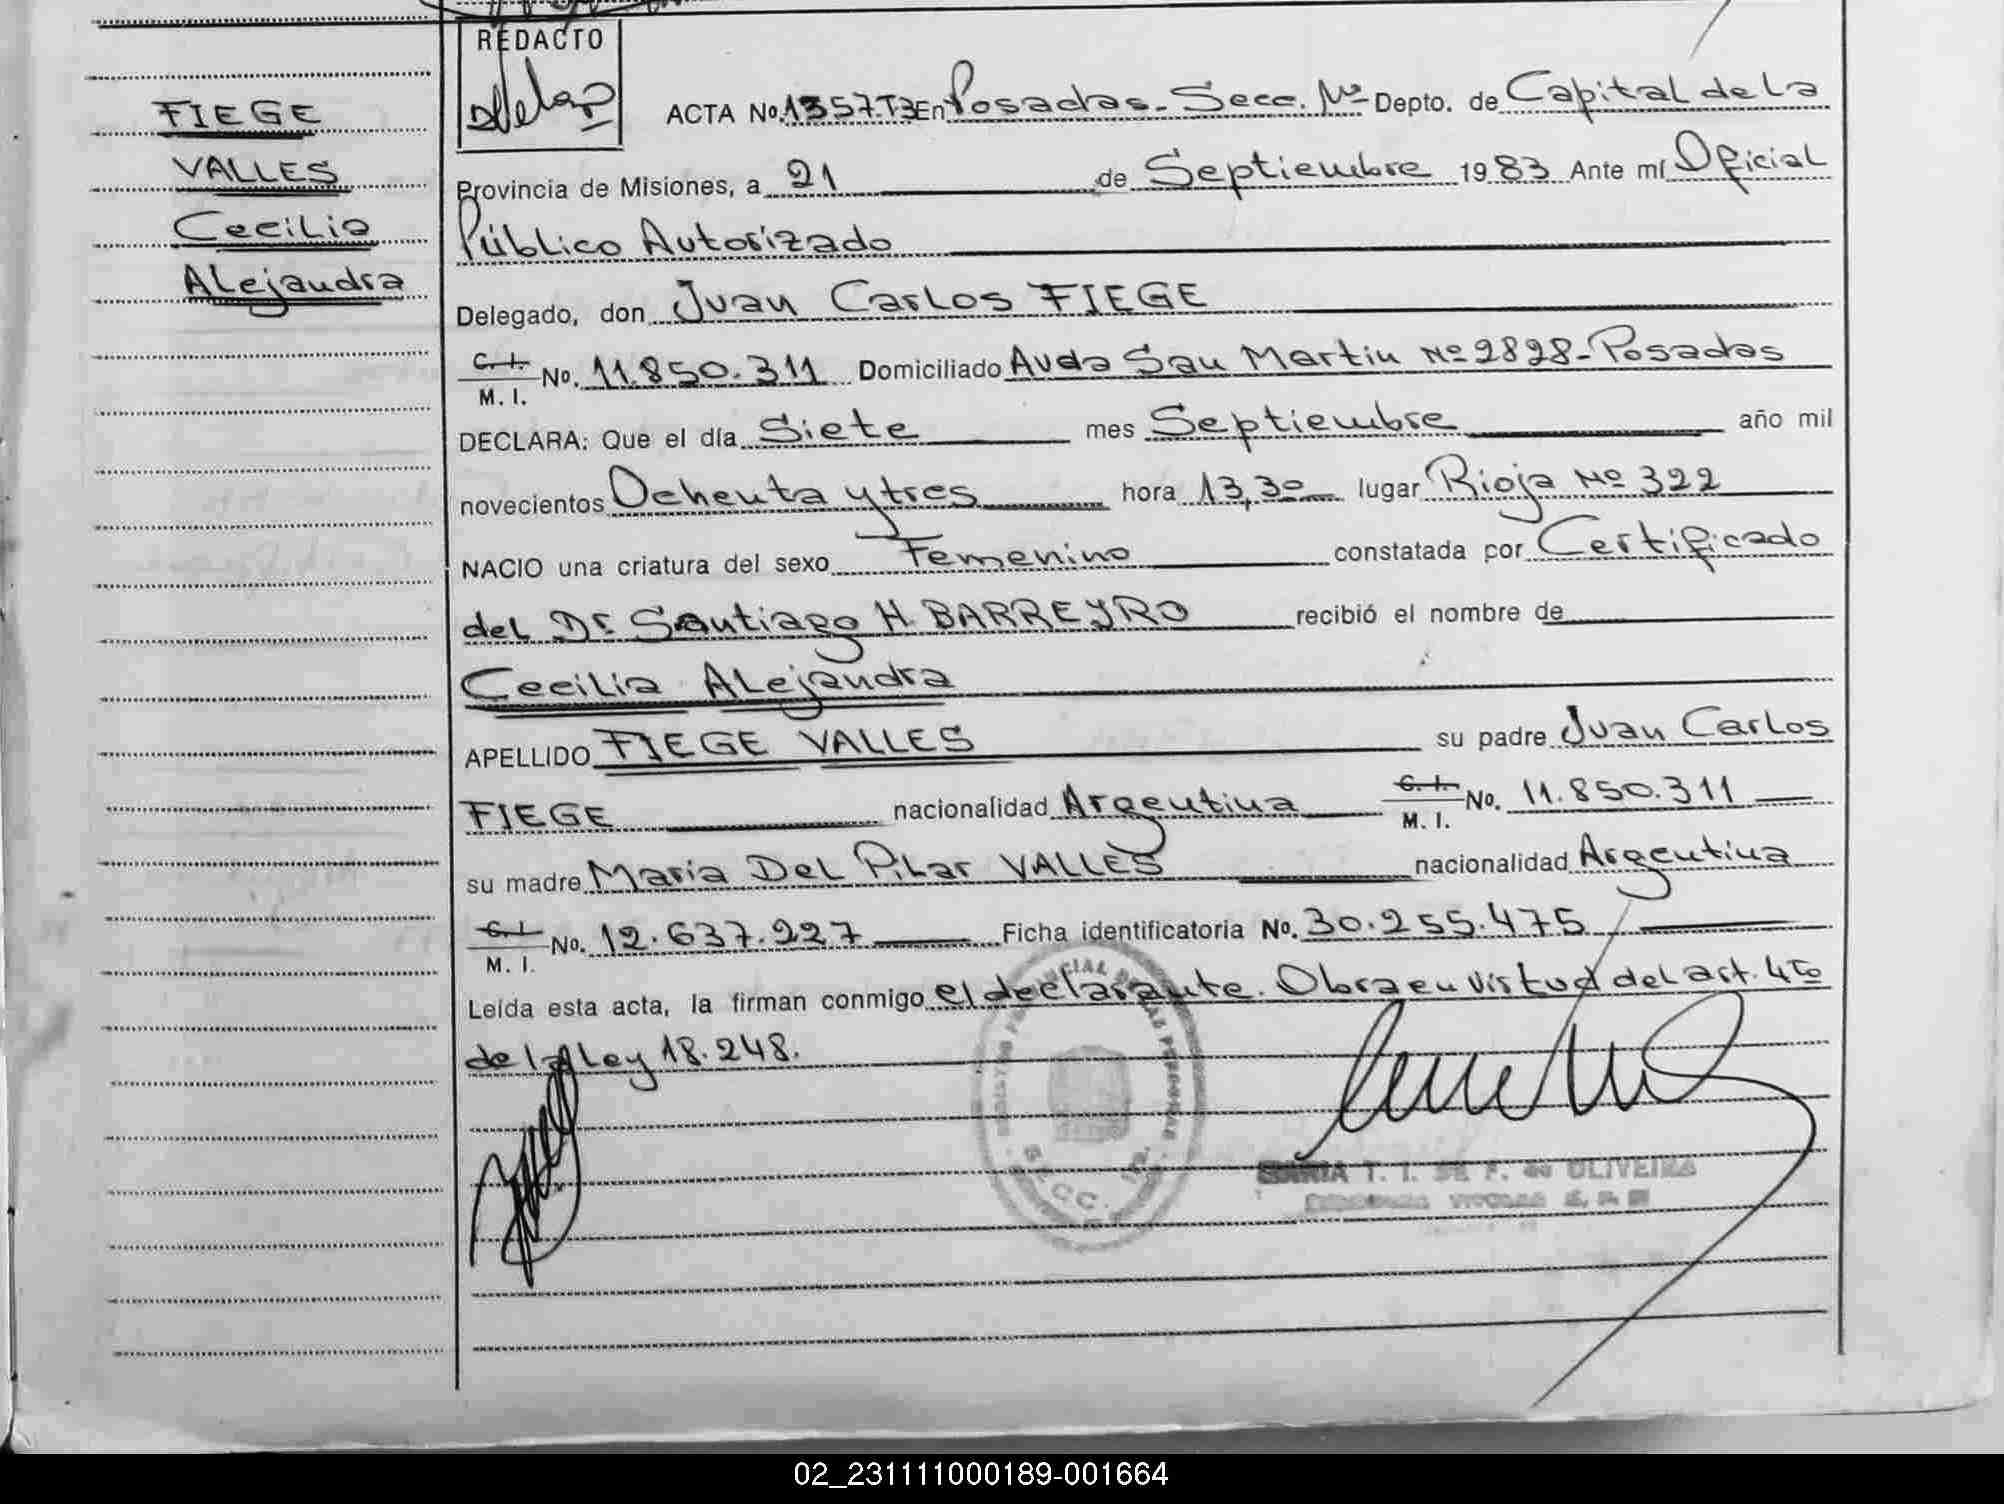 REDACTO
FIEGE
VALLES
Cecilia
Alejandra
ACTA No. 1357.T3 En Posadas - Secc. Nº Depto. de Capital de la
Provincia de Misiones, a 21 de Septiembre 1983 Ante mí Oficial
Público Autorizado
Delegado, don Juan Carlos FIEGE
C. I. M. I. No. 11.850.311 Domiciliado Avda San Martin Nº 2828 - Posadas
DECLARA: Que el día Siete mes Septiembre año mil
novecientos Ochenta y tres hora 13,30 lugar Rioja Nº 322
NACIO una criatura del sexo Femenino constatada por Certificado
del Dr. Santiago H. BARREYRO recibió el nombre de
Cecilia Alejandra
APELLIDO FIEGE VALLES su padre Juan Carlos
FIEGE nacionalidad Argentina C. I. M. I. No. 11.850.311
su madre Maria Del Pilar VALLES nacionalidad Argentina
C. I. M. I. No. 12.637.227 Ficha identificatoria No. 30.255.475
Leída esta acta, la firman conmigo el declarante. Obra en virtud del art. 4to
de la Ley 18.248.
MARIA T. I. DE F. de OLIVEIRA
02_231111000189-001664